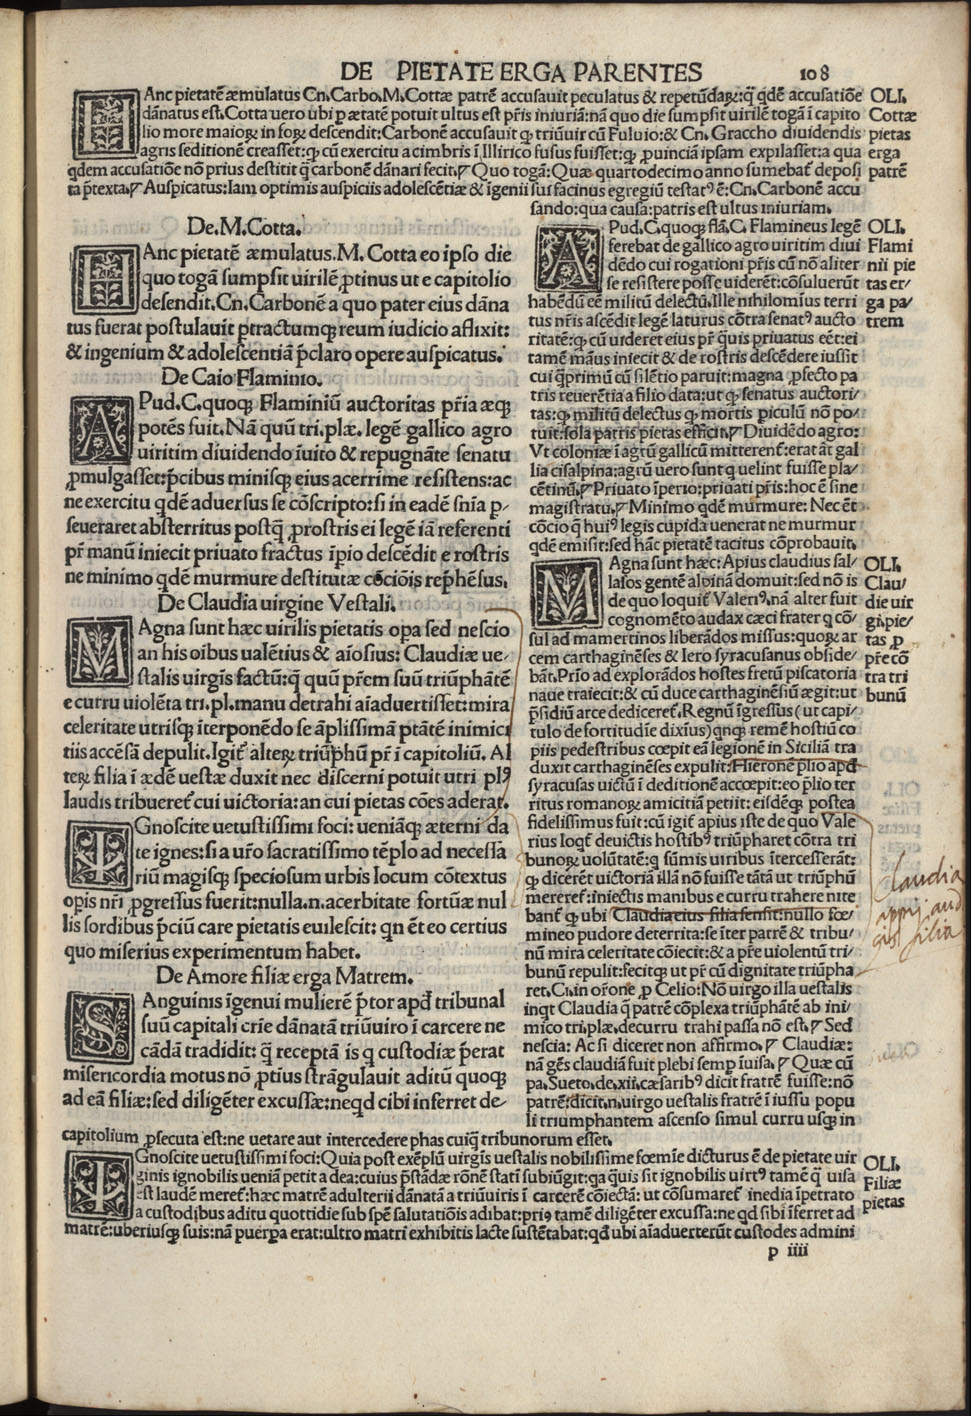 DE PIETATE ERGA PARENTES 108
HAnc pietatē æmulatus Cn. Carbo. M. Cottæ patrē accusauit peculatus & repetūdaꝝ: q̃ qdē accusatiōe
dānatus est. Cotta uero ubi p ætatē potuit ultus est pr̄is iniuriā: nā quo die sumpsit uirilē togā ī capito
lio more maioꝝ in foꝝ descendit: Carbonē accusauit ꝙ triūuir cū Fuluio: & Cn. Graccho diuidendis
agris seditionē creasset: ꝙ cū exercitu a cimbris ī Illirico fusus fuisset: ꝙ ꝓuinciā ipsam expilasset: a qua
qdem accusatiōe nō prius destitit q̄ carbonē dānari fecit. ❡ Quo togā: Quæ quartodecimo anno sumebat̄ deposi
ta p̄texta. ❡ Auspicatus: Iam optimis auspiciis adolescētiæ & īgenii sui facinus egregiū testatꝰ ē: Cn. Carbonē accu
sando: qua causa: patris est ultus iniuriam.
OLI.
Cottæ
pietas
erga
patrē
De. M. Cotta.
HAnc pietatē æmulatus. M. Cotta eo ipso die
quo togā sumpsit uirilē ꝓtinus ut e capitolio
desendit. Cn. Carbonē a quo pater eius dāna
tus fuerat postulauit ptractumq; reum iudicio aflixit:
& ingenium & adolescentiā p̄claro opere auspicatus.
De Caio Flaminio.
APud. C. quoq; Flaminiū auctoritas pr̄ia æq;
potēs fuit. Nā quū tri. plæ. legē gallico agro
uiritim diuidendo īuito & repugnāte senatu
ꝓmulgasset: p̄cibus minisq; eius acerrime resistens: ac
ne exercitu qdē aduersus se cōscripto: si in eadē sn̄ia p-
seueraret absterritus postq̄ ꝓrostris ei legē iā referenti
pr̄ manū iniecit priuato fractus īpio descēdit e rostris
ne minimo qdē murmure destitutæ cōciōis rep̄hēsus.
De Claudia uirgine Vestali.
MAgna sunt hæc uirilis pietatis opa sed nescio
an his oībus ualētius & aīosius: Claudiæ ue-
stalis uirgīs factū: q̄ quū pr̄em suū triūphātē
e curru uiolēta tri. pl. manu detrahi aīaduertisset: mira
celeritate utrisq; īterponēdo se āplissimā ptātē inimici
tiis accēsā depulit. Igit̄ alteꝝ triūphū pr̄ ī capitoliū. Al
teꝝ filia ī ædē uestæ duxit nec discerni potuit utri plꝰ
laudis tribueret̄ cui uictoria: an cui pietas cōes aderat.
IGnoscite uetustissimi foci: ueniāq; æterni da
te ignes: si a ur̄o sacratissimo tēplo ad necessa
riū magisq; speciosum urbis locum cōtextus
opis nr̄i ꝓgressus fuerit: nulla. n. acerbitate fortūæ nul
lis sordibus p̄ciū care pietatis euilescit: qn ēt eo certius
quo miserius experimentum habet.
De Amore filiæ erga Matrem.
SAnguinis īgenui mulierē p̄tor apd tribunal
suū capitali crīe dānatā triūuiro ī carcere ne
cādā tradidit: q̄ receptā is q custodiæ p̄erat
misericordia motus nō ꝓtius strāgulauit aditū quoq;
ad eā filiæ: sed diligēter excussæ: neqd cibi inferret de-
APud. C. quoq; fla. C. Flamineus legē
ferebat de gallico agro uiritim diui
dēdo cui rogationi pr̄is cū nō aliter
se resistere posse uiderēt: cōsuluerūt
habēdū eē militū delectū. Ille nihilomīus terri
tus nr̄is ascēdit legē laturus cōtra senatꝰ aucto
ritatē: ꝙ cū uideret eius pr̄ q̄uis priuatus eēt: ei
tamē māus iniecit & de rostris descēdere iussit
cui q̄primū cū silētio paruit: magna ꝓfecto pa
tris reuerētia a filio data: ut q̨ senatus auctori-
tas: q̨ militū delectus q̨ mortis piculū nō po-
tuit: sola patris pietas effīcit. ❡ Diuidēdo agro:
Vt coloniæ ī agrū gallicū mitterent̄: erat āt gal
lia cisalpina: agrū uero sunt q uelint fuisse pla-
cētinū. ❡ Priuato īperio: priuati pr̄is: hoc ē sine
magistratu. ❡ Minimo qdē murmure: Nec ēt
cōcio q̄ huiꝰ legis cupida uenerat ne murmur
qdē emisit: sed hāc pietatē tacitus cōprobauit.
OLI.
Flami
nii pie
tas er-
ga pa-
trem
MAgna sunt hæc: Apius claudius sal-
lasos gentē alpinā domuit: sed nō is
de quo loquit̄ Valeriꝰ. nā alter fuit
cognomēto audax cæci frater q cō-
sul ad mamertinos liberādos missus: quoꝝ ar
cem carthaginēses & Iero syracusanus obside-
bāt. Prīo ad explorādos hostes fretū piscatoria
naue traiecit: & cū duce carthaginēsiū ægit: ut
p̄sidiū arce dediceret. Regnū īgressus (ut capi-
tulo de fortitudīe dixius) qnq; remē hostiū co
piis pedestribus cœpit eā legionē in Siciliā tra
duxit carthaginēses expulit: Hieronē p̄lio apd
syracusas uictū ī deditionē accœpit: eo p̄lio ter
ritus romanoꝝ amicitiā petiit: eisdēq; postea
fidelissimus fuit: cū igit̄ apius iste de quo Vale
rius loqt̄ deuictis hostibꝰ triūpharet cōtra tri
bunoꝝ uolūtatē: q sūmis uiribus ītercesserāt:
ꝙ dicerēt uictoriā illā nō fuisse tātā ut triūphū
mereret̄: iniectis manibus e curru trahere nite
bant̄ ꝙ ubi Claudia eius filia sensit: nullo fœ-
mineo pudore deterrita: se īter patrē & tribu-
nū mira celeritate cōiecit: & a pr̄e uiolentū tri-
bunū repulit: fecitq; ut pr̄ cū dignitate triūpha
ret. Ci. in or̄one ꝓ Celio: Nō uirgo illa uestalis
inqt Claudia q̄ patrē cōplexa triūphātē ab ini-
mico tri. plæ. decurru trahi passa nō est. ❡ Sed
nescia: Ac si diceret non affirmo. ❡ Claudiæ:
nā gēs claudiā fuit plebi semp īuisa. ❡ Quæ cū
pa. Sueto. de. xii. cæsaribꝰ dicit fratrē fuisse: nō
patrē: dicit. n. uirgo uestalis fratrē ī iussu popu
li triumphantem ascenso simul curru usq; in
OLI.
Clau-
diæ uir
gi. pie-
tas ꝓ
pr̄e cō
tra tri
bunū
Claudia
appij aud
filia
capitolium ꝓsecuta est: ne uetare aut intercedere phas cuiq̄ tribunorum esset.
IGnoscite uetustissimi foci: Quia post exēplū uirgīs uestalis nobilissime fœmīe dicturus ē de pietate uir
ginis ignobilis ueniā petit a dea: cuius p̄stādæ rōnē statī subiūgit: qa q̄uis sit ignobilis uirtꝰ tamē q̄ uisa
est laudē meret̄: hæc matrē adulterii dānatā a triūuiris ī carcerē cōiectā: ut cōsumaret̄ inedia īpetrato
a custodibus aditu quottidie sub spē salutatiōis adibat: priꝰ tamē diligēter excussa: ne qd sibi īferret ad
matrē: uberiusq; suis: nā puerpa erat: ultro matri exhibitis lacte sustētabat: qd ubi aīaduerterūt custodes admini
OLI.
Filiæ
pietas
p iiii